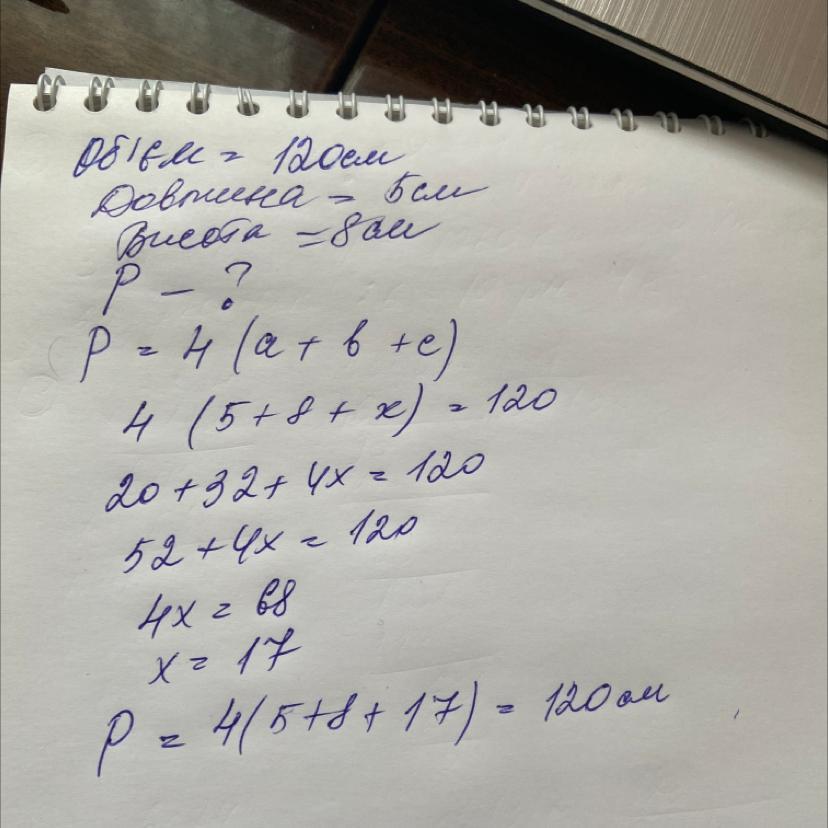 Об'єм = 120см
Довжина = 5см
Висота = 8см
P - ?
P = 4 (a + b + c)
4 (5 + 8 + x) = 120
20 + 32 + 4x = 120
52 + 4x = 120
4x = 68
x = 17
P = 4(5+8+17) = 120см